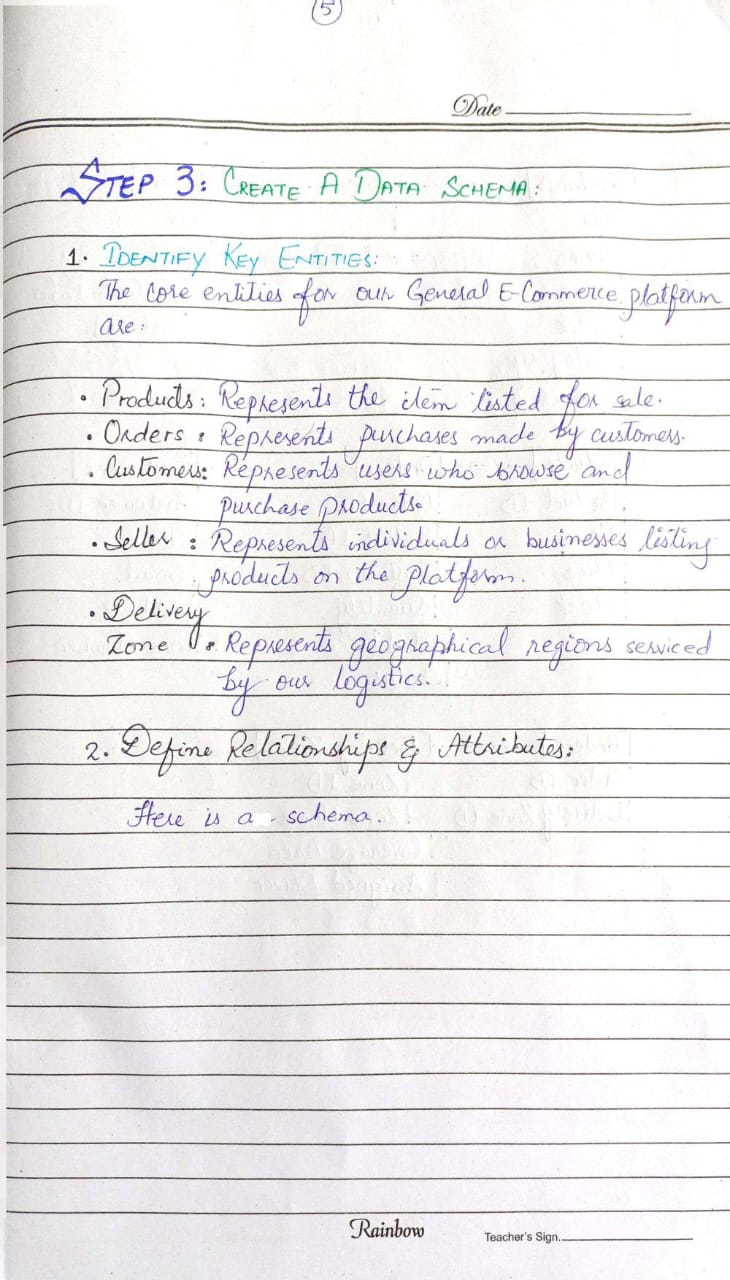 5
Date
STEP 3: CREATE A DATA SCHEMA:
1. IDENTIFY KEY ENTITIES:
The core entities for our General E-Commerce platform
are:
• Products: Represents the item listed for sale.
• Orders : Represents purchases made by customers.
• Customers: Represents users who browse and
purchase products.
• Seller : Represents individuals or businesses listing
products on the platform.
• Delivery
Zone : Represents geographical regions serviced
by our logistics.
2. Define Relationships & Attributes:
Here is a - schema.
Rainbow
Teacher's Sign.